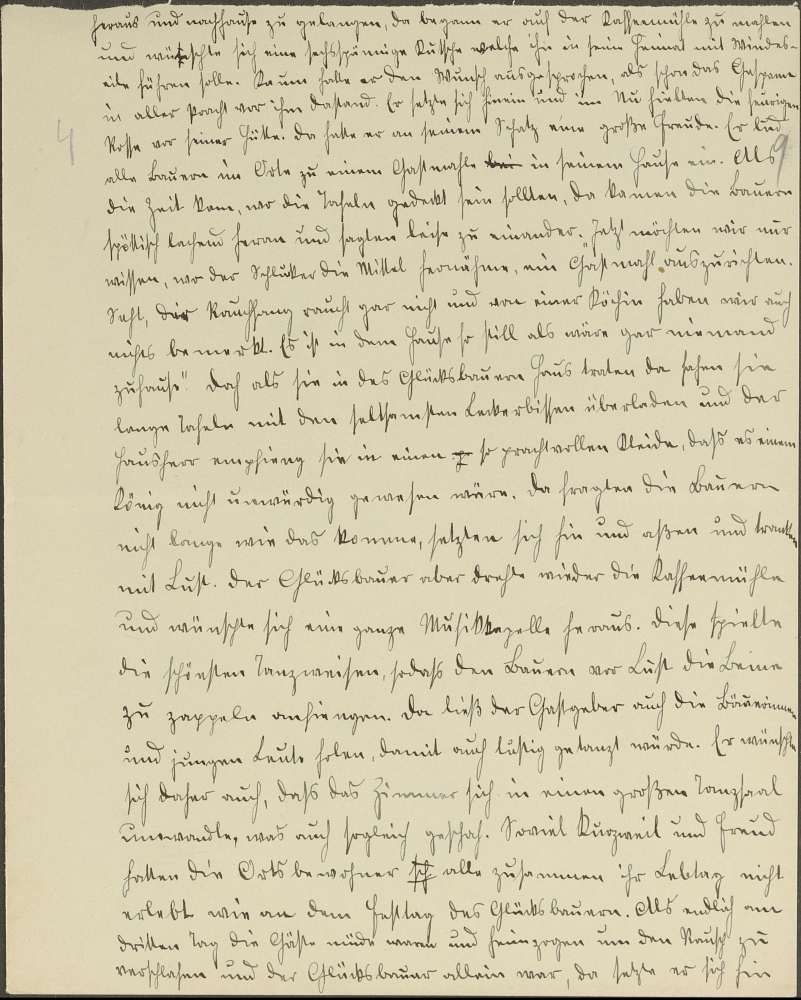 heraus und nachhause zu gelangen, da begann er auf der Kaffeemühle zu mahlen
und wünschte sich eine sechsspännige Kutsche welche ihn in seine Heimat mit Windes-
eile führen solle. Kaum hatte er den Wunsch ausgesprochen, als schon das Gespann
in aller Pracht vor ihm dastand. Er setzte sich hinein und im Nu hielten die feurigen
Rosse vor seiner Hütte. Da hatte er an seinem Schatz eine große Freude. Er lud
4
9
alle Bauern im Orte zu einem Gastmahle bei in seinem Hause ein. Als
die Zeit kam, wo die Tafeln gedeckt sein sollten, da kamen die Bauern
spöttisch lachend heran und sagten leise zu einander. "Jetzt möchten wir nur
wissen, wo der Schlucker die Mittel hernähme, ein Gastmahl auszurichten.
Seht, der Rauchfang raucht gar nicht und von einer Köchin haben wir auch
nichts bemerkt. Es ist in dem Hause so still als wäre gar niemand
zuhause". Doch als sie in des Glücksbauern Haus traten da sahen sie
lange Tafeln mit den seltsamsten Leckerbissen überladen und der
Hausherr empfieng sie in einen so prachtvollen Kleide, dass es einem
König nicht unwürdig gewesen wäre. Da fragten die Bauern
nicht lange wie das komme, setzten sich hin und aßen und tranken
mit Lust. Der Glücksbauer aber drehte wieder die Kaffeemühle
und wünschte sich eine ganze Musikkapelle heraus. Diese spielte
die schönsten Tanzweisen, sodass den Bauern vor Lust die Beine
zu zappeln anfiengen. Da ließ der Gastgeber auch die Bäuerinnen
und jungen Leute holen, damit auch lustig getanzt würde. Er wünschte
sich daher auch, dass das Zimmer sich in einen großen Tanzsaal
umwandle, was auch sogleich geschah. Soviel Kurzweil und Freud
hatten die Ortsbewohner sich alle zusammen ihr Lebtag nicht
erlebt wie an dem Festtag des Glücksbauern. Als endlich am
dritten Tag die Gäste müde waren und heimzogen um den Rausch zu
verschlafen und der Glücksbauer allein war, da setzte er sich hin